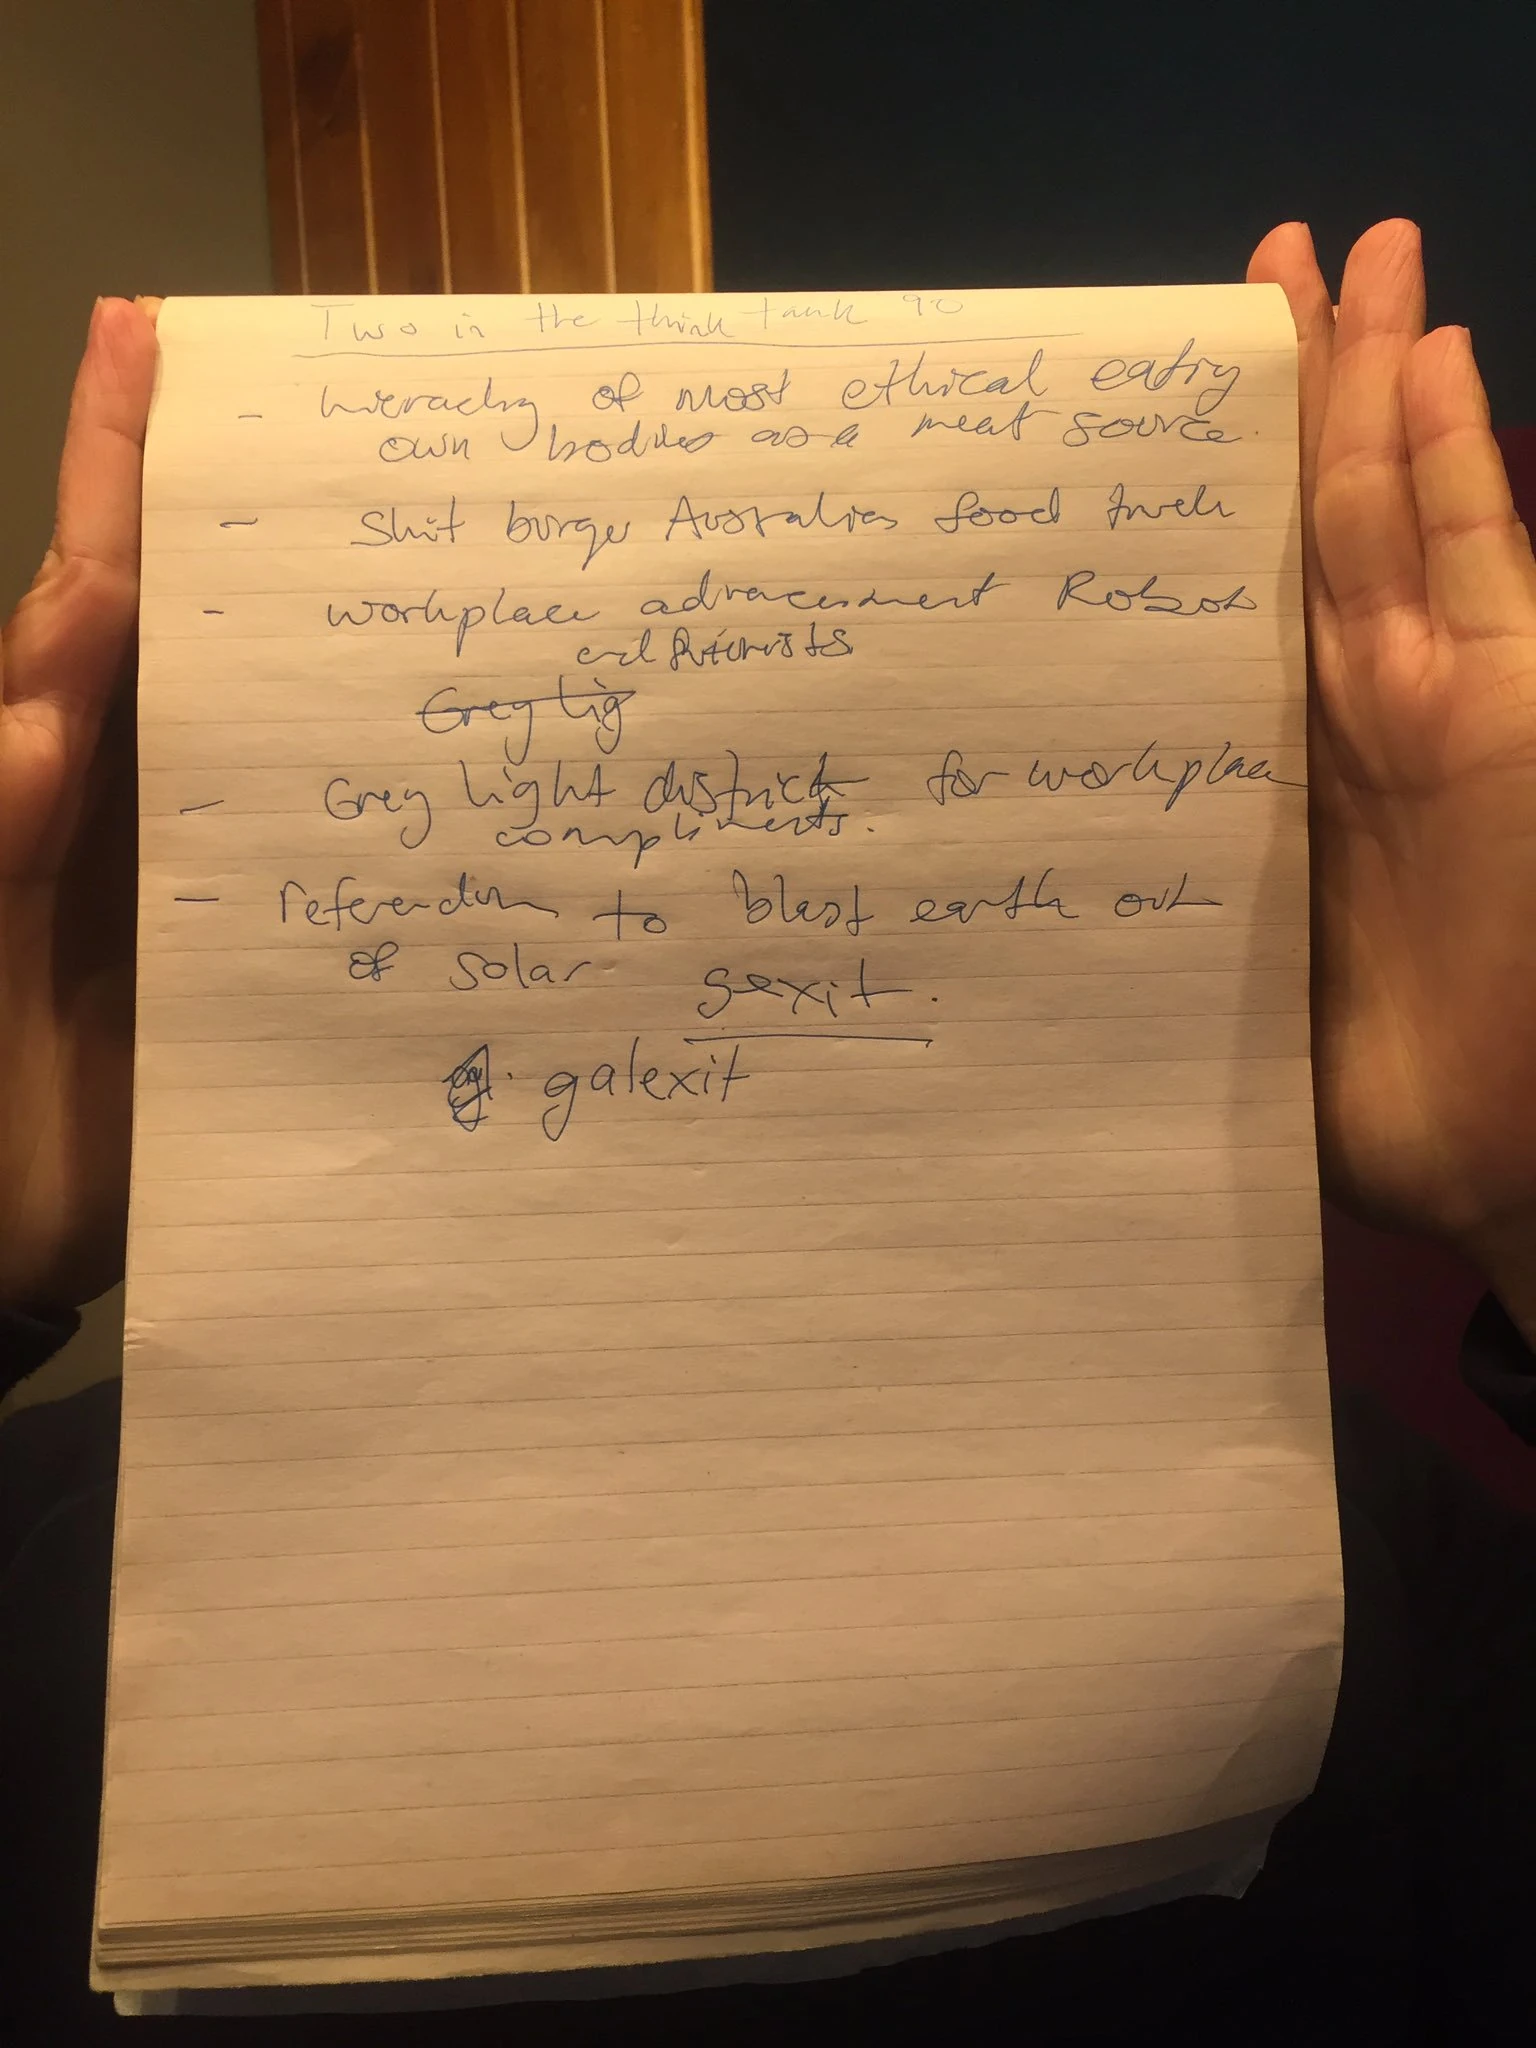 Two in the think tank 90
- hierachy of most ethical eating
own bodies as a meat source.
- Shit burger Australias food truck
- workplace advancement Robots
and futurists
Grey lig
- Grey light district for workplace
compliments.
- referendum to blast earth out
of solar sexit.
eg. galexit